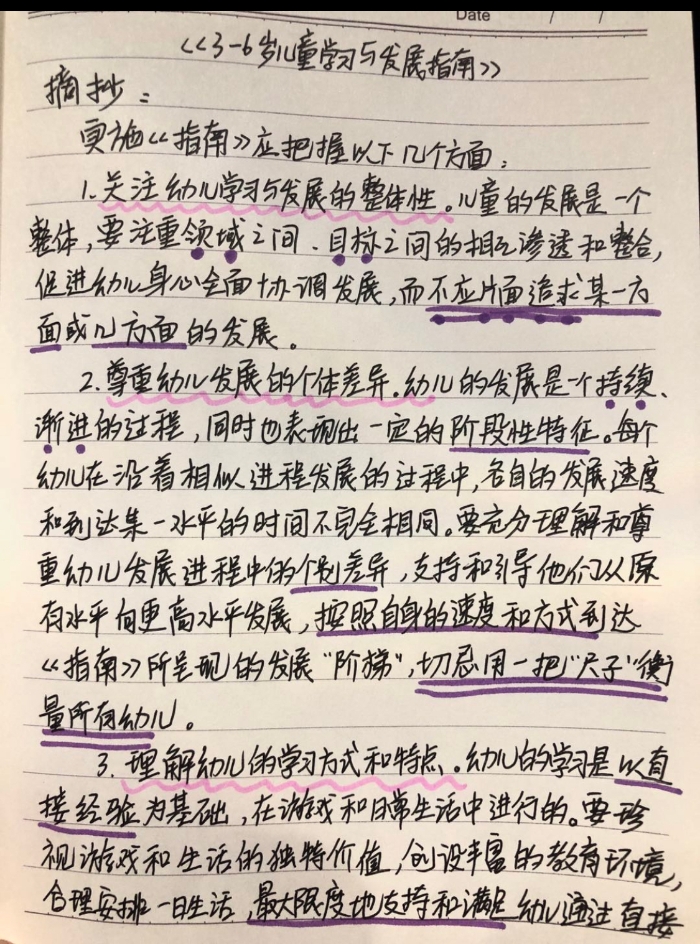 Date / /
《3-6岁儿童学习与发展指南》
摘抄：
实施《指南》应把握以下几个方面：
1.关注幼儿学习与发展的整体性。儿童的发展是一个
整体，要注重领域之间、目标之间的相互渗透和整合，
促进幼儿身心全面协调发展，而不应片面追求某一方
面或几方面的发展。
2.尊重幼儿发展的个体差异。幼儿的发展是一个持续、
渐进的过程，同时也表现出一定的阶段性特征。每个
幼儿在沿着相似进程发展的过程中，各自的发展速度
和到达某一水平的时间不完全相同。要充分理解和尊
重幼儿发展进程中的个别差异，支持和引导他们从原
有水平向更高水平发展，按照自身的速度和方式到达
《指南》所呈现的发展“阶梯”，切忌用一把“尺子”衡
量所有幼儿。
3.理解幼儿的学习方式和特点。幼儿的学习是以直
接经验为基础，在游戏和日常生活中进行的。要珍
视游戏和生活的独特价值，创设丰富的教育环境，
合理安排一日生活，最大限度地支持和满足幼儿通过直接